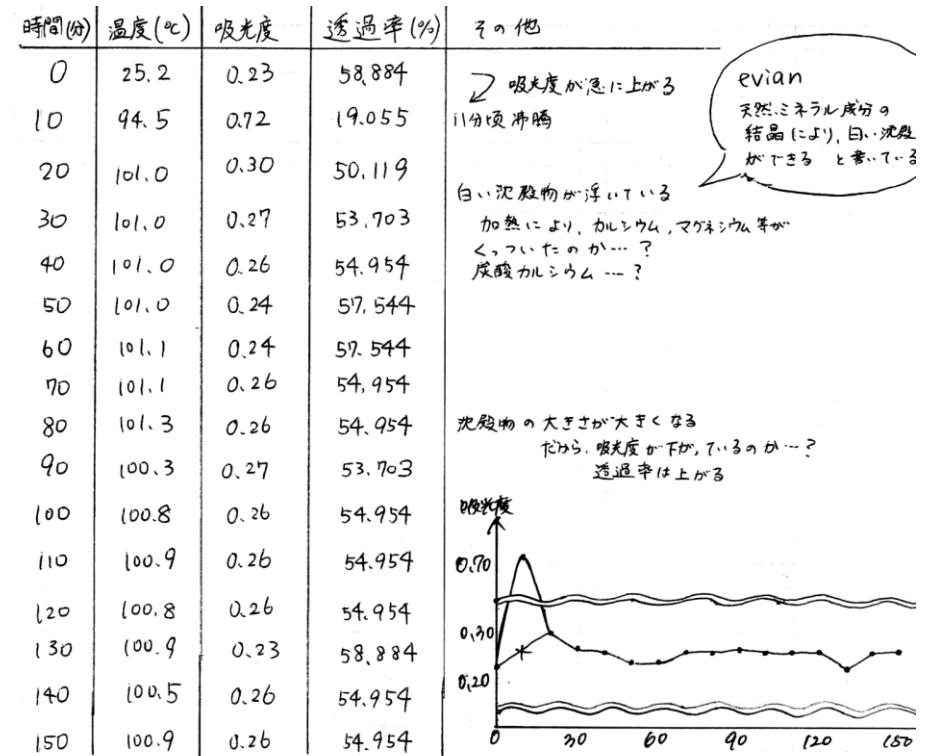 時間(分) 温度(℃) 吸光度 透過率(%) その他
0 25.2 0.23 58.884
吸光度が急に上がる
10 94.5 0.72 19.055 11分頃沸騰
20 101.0 0.30 50.119
白い沈殿物が浮いている
30 101.0 0.27 53.703 加熱により、カルシウム、マグネシウム等が
くっついたのか…?
40 101.0 0.26 54.954 炭酸カルシウム…?
50 101.0 0.24 57.544
60 101.1 0.24 57.544
70 101.1 0.26 54.954
80 101.3 0.26 54.954 沈殿物の大きさが大きくなる
だから、吸光度が下がっているのか…?
90 100.3 0.27 53.703 透過率は上がる
100 100.8 0.26 54.954
110 100.9 0.26 54.954
120 100.8 0.26 54.954
130 100.9 0.23 58.884
140 100.5 0.26 54.954
150 100.9 0.26 54.954
evian
天然ミネラル成分の
結晶により、白い沈殿
ができる と書いている
吸光度
0.70
0.30
0.20
0 30 60 90 120 150